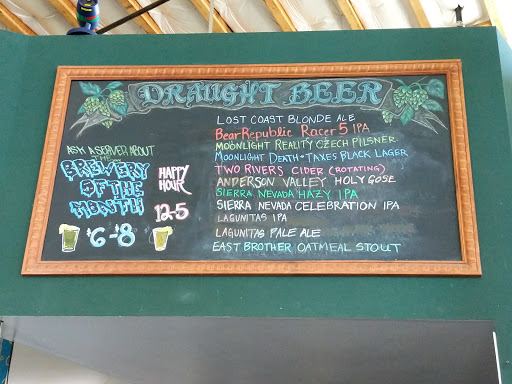 DRAUGHT BEER
ASK A SERVER ABOUT
THE
BREWERY
OF THE
MONTH
HAPPY
HOUR
12-5
$6-8
LOST COAST BLONDE ALE
Bear Republic Racer 5 IPA
MOONLIGHT REALITY CZECH PILSNER
MOONLIGHT DEATH & TAXES BLACK LAGER
TWO RIVERS CIDER (ROTATING)
ANDERSON VALLEY HOLY GOSE
SIERRA NEVADA HAZY IPA
SIERRA NEVADA CELEBRATION IPA
LAGUNITAS IPA
LAGUNITAS PALE ALE
EAST BROTHER OATMEAL STOUT